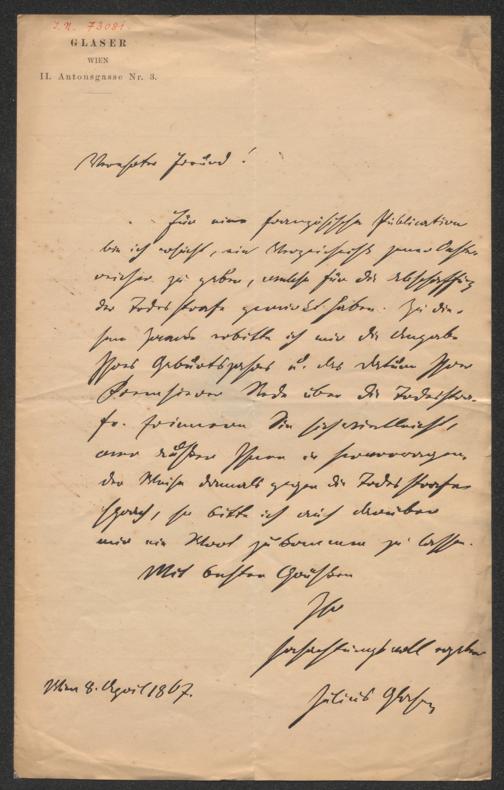 I. N. 73081
GLASER
WIEN
II. Antonsgasse Nr. 3.
Verehrter Freund!
Für eine französische Publication
bin ich ersucht, ein Verzeichniß jener Oester-
reicher zu geben, welche für die Abschaffung
der Todesstrafe gewirkt haben. Zu die-
sem Zwecke erbitte ich mir die Angabe
Ihres Geburtsjahres u. das Datum Ihrer
Kremsierer Rede über die Todesstra-
fe. Erinnern Sie sich vielleicht,
wer außer Ihnen in hervorragen-
der Weise damals gegen die Todesstrafe
sprach, so bitte ich auch darüber
mir ein Wort zukommen zu lassen.
Mit besten Grüßen
Ihr
hochachtungsvoll ergebener
Julius Glaser
Wien 8. April 1867.